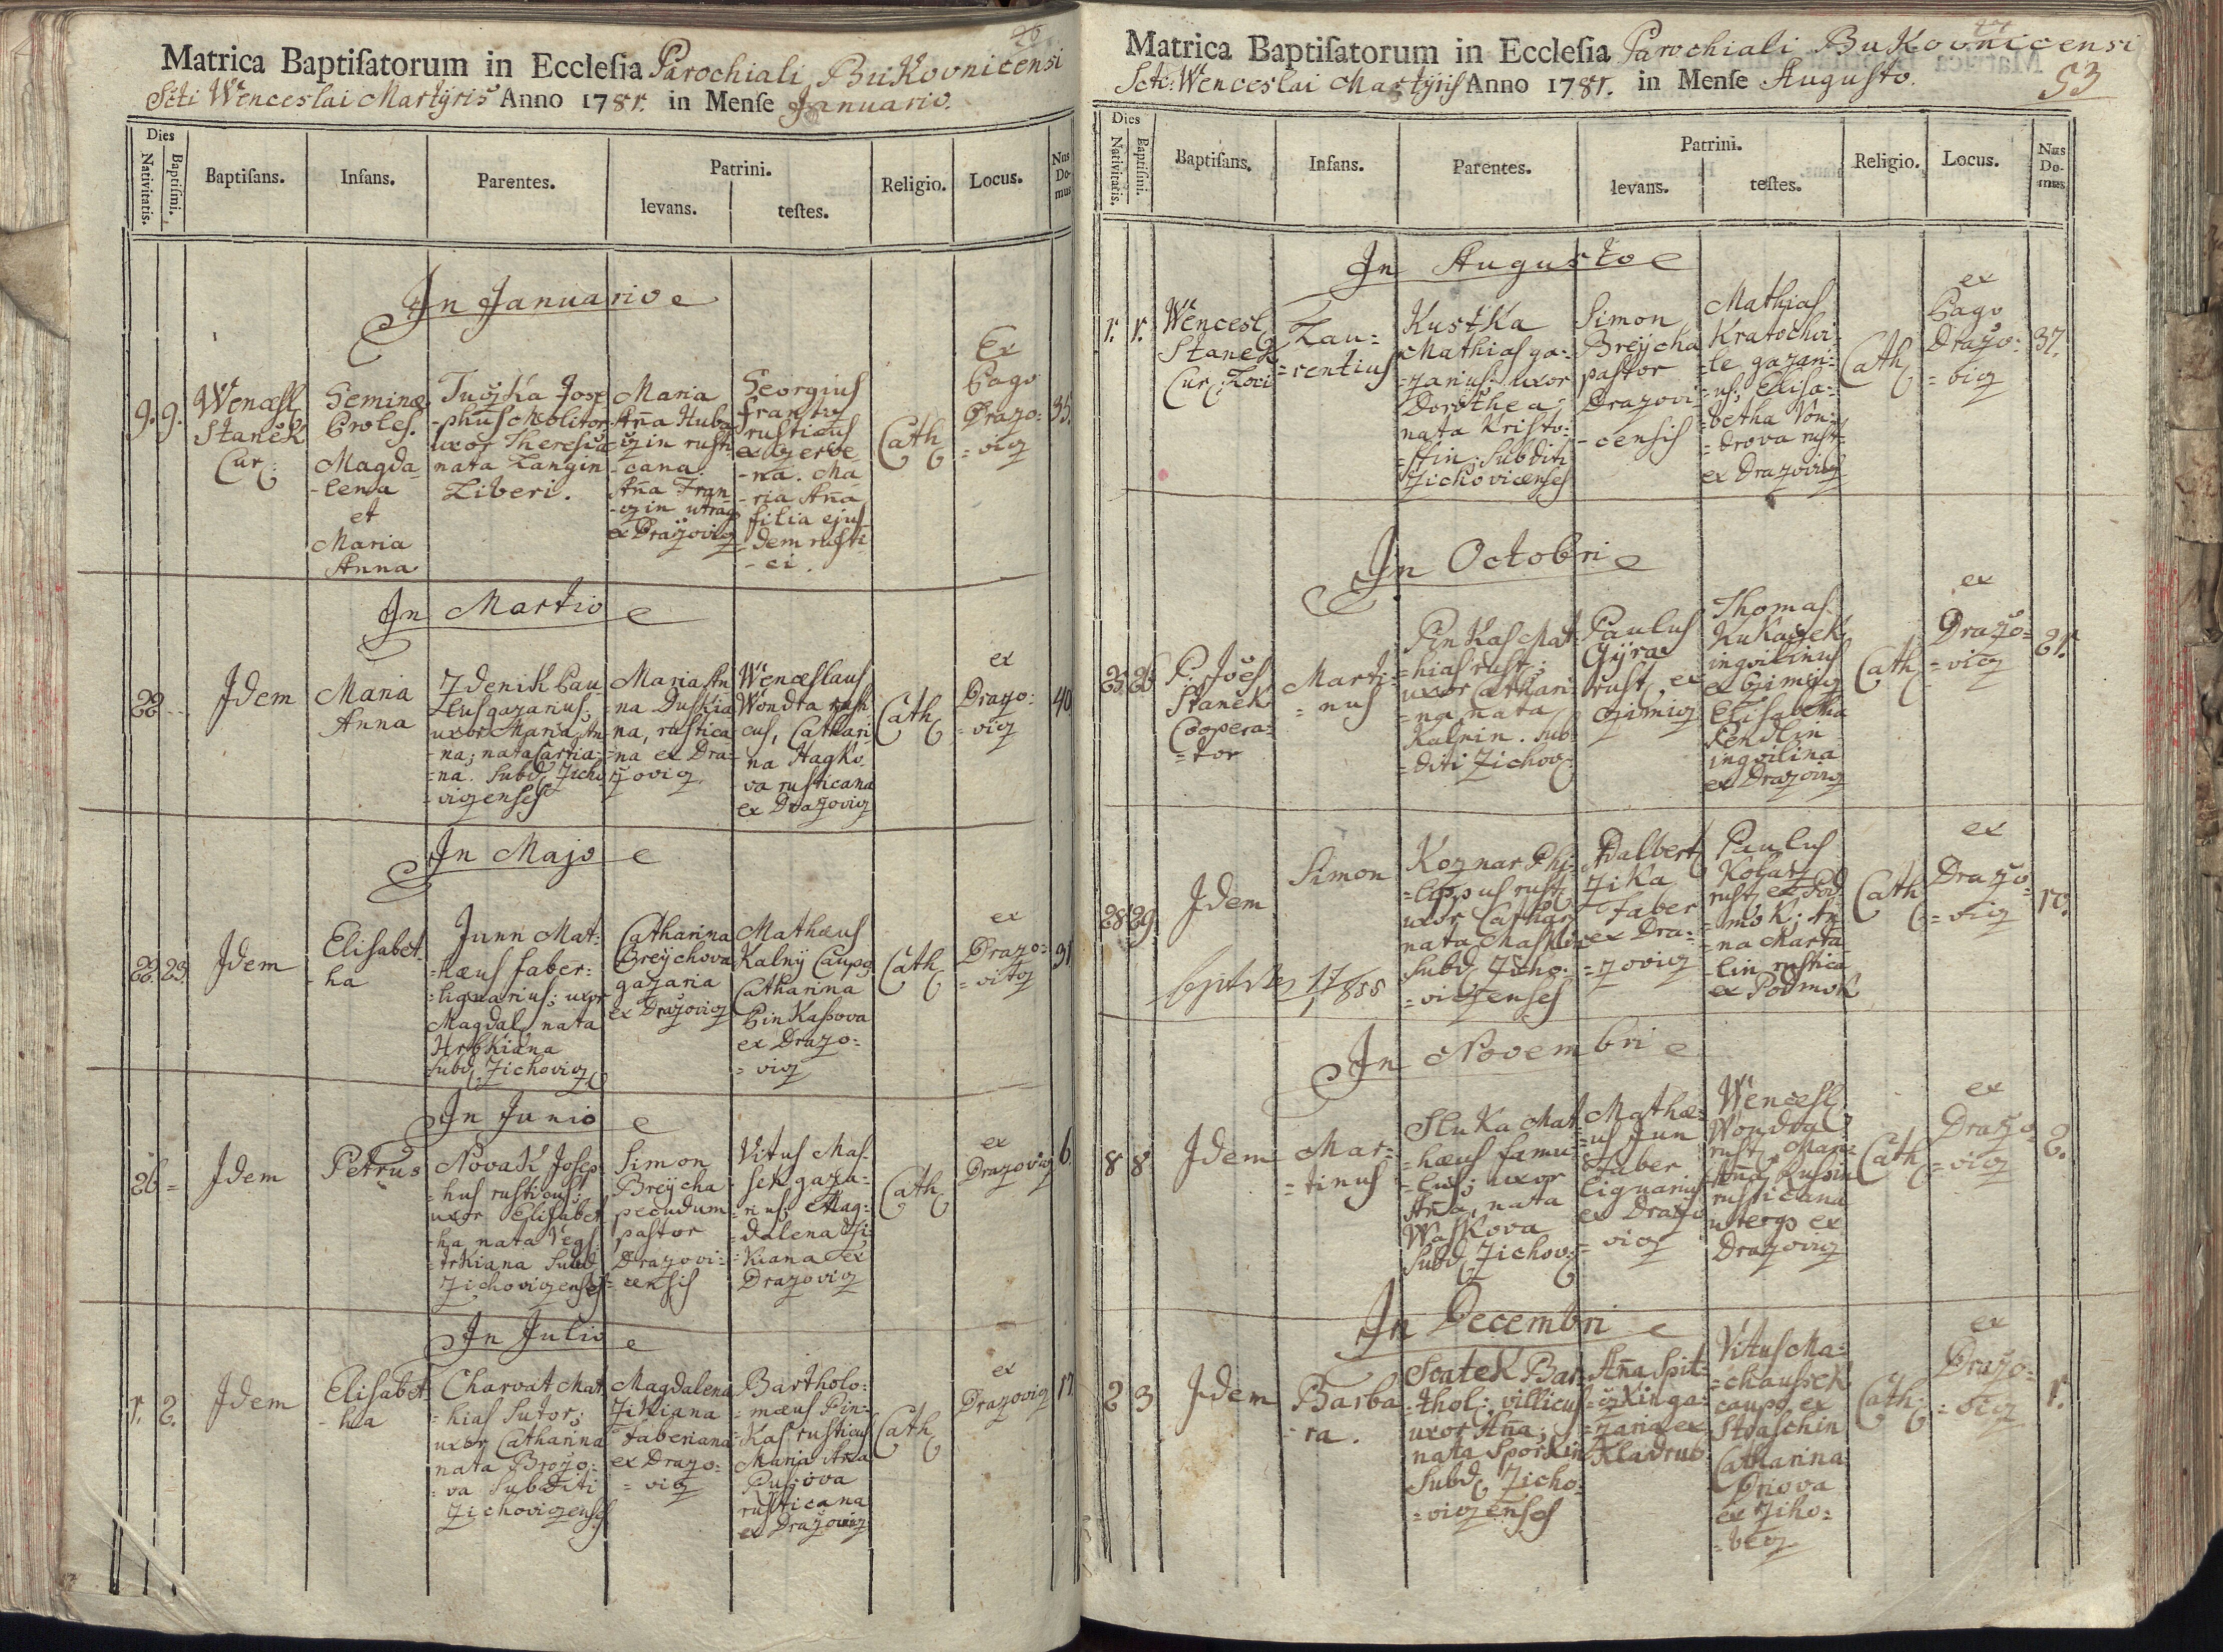 Matrica Baptiſatorum in Eccleſia Parochiali Bukovnicensi
Scti Wenceslai Martyris Anno 1781. in Menſe Januario.
Dies
Nativitatis.
Baptiſmi.
Baptiſans.
Infans.
Parentes.
Patrini.
levans.
teſtes.
Religio.
Locus.
Nus Do- mus
In Januario
9. 9.
Wenæsl
Stanek
Cur:
Geminæ
Proles.
Magda
-lena
et
Maria
Anna
Jose
-phus Molitor
uxor Theresia
nata Langin
Liberi.
Maria
Aña Huba
in rusti
-cana
Aña Fran
in utraq
ex Dražoviz
Georgius
Frantz
rusticus
-na. Ma
-ria Aña
filia ejus
-dem rusti
-ci.
Cath
Ex
Pago
Drazo:
=viz
35.
In Martio
22
Idem
Maria
Anna
Zdenik Pau
lus gazarus;
uxor Maria An
-na; nata
-na. Subd Zicho
vizenses
Maria An
-na Duskia
na, rustica
-na ex Dra-
žoviz
Wenceslaus
Wondra rusti
cus, Cathari
na Hagko
va rusticana
ex Drazoviz
Cath
ex
Drazo:
-viz
40
In Majo
22 23.
Idem
Elisabet
-ha
Junn Mat:
=hæus faber:
=lignarius; uxor
Magdal nata
Hrbkiana
Subd, Zichoviz
Catharina
Breychova
gazaria
ex Drazoviz
Mathæus
Kalný Caupo
Catharina
Pinkasova
ex Drazo:
=viz
Cath
ex
Drazo:
=viz
91
In Junio
26 =
Idem
Petrus
Novak Josep
-hus rusticus;
uxor Elisabet
-ha nata
-trkiana Subd
Zichovizenses
Simon
Breycha
pecudum
pastor
Drazovi:
=censis
Vitus Mas
sek gaza-
rius; Mag:
=dalena
=kiana ex
Drazoviz
Cath
ex
Drazoviz
6
In Julio
1. 2.
Idem
Elisabet
-ha
Charvat Mat
=hias Sutor;
uxor Catharina
nata Brozo:
=va Subditi
Zichovizenses
Magdalena
Zikiana
Faberiana
ex Drazo:
=viz
Bartholo:
=mæus Pin-
kas rusticus
Maria Aña
rusticana
ex Drazoviz
Cath
ex
Drazoviz
17
Matrica Baptiſatorum in Eccleſia Parochiali Bukovnicensi
Scti: Wenceslai Martyris Anno 1781. in Menſe Augusto.
53
Dies
Nativitatis.
Baptiſmi.
Baptiſans.
Infans.
Parentes.
Patrini.
levans.
teſtes.
Religio.
Locus.
Nus Do- mus
In Augusto
1. 1.
Wencesl
Stanek
Cur: Loci
Lau=
=rentius
Kustka
Mathias ga:
zarius; uxor
Dorothea
nata Kristo:
=ffin: Subditi
Zichovicenses
Simon
Breycha
pastor
Drazovi
-censis
Mathias
Kratochvi
-le gazari-
us; Elisa-
betha Von:
=drova rust:
ex Drazoviz
Cath
ex
Pago
Drazo:
=viz
37.
In Octobri
25 26
P. Joes
Stanek
Coopera=
=tor
Marti=
=nus
Pinkas Mat
=hias rust:;
uxor Cathari
=na nata
Kalnin. Sub
=diti Zichov:
Paulus
Gyra
rust, ex
Thomas
ingvilinus
Elisabetha
ingvilina
ex Drazoviz
Cath
ex
Drazo=
=viz
21.
28 29
Idem
Simon
Koznar Phi-
=lippus rust
uxor Cathar
nata Maskin
Subd Zicho
=vizenses
1/7 855
Adalbert
Zika
Faber
ex Dra-
=zoviz
Paulus
Kolarz
rust, ex Pod
=mok; An
=na Marta
lin rustica
ex Podmok
Cath
ex
Drazo
=viz
10.
In Novembri
8 8
Idem
Mar=
=tinus
Sluka Mat
=hæus famu-
=lus; uxor
Aña nata
Waskova
Subd Zichov:
Mathæ:
=us Jun
Faber
lignarius
ex Drazo
=viz
Wencesl
Wondra
rust, Mari
Aña Russin
rusticana
uterqs ex
Drazoviz
Cath
ex
Drazo
=viz
2.
In Decembri
2 3
Idem
Barba
-ra.
Svatek Bar
-thol: villicus
uxor Aña:
nata Sporkin
Subd Zicho-
=vizenses
Aña Spit:
kin ga:
=zaria ex
Kladrub
Vitus Ma:
=chaussek
caupo, ex
Straschin
Catharina
ex Ziho:
=vez
Cath:
ex
Drazo=
=viz
1.